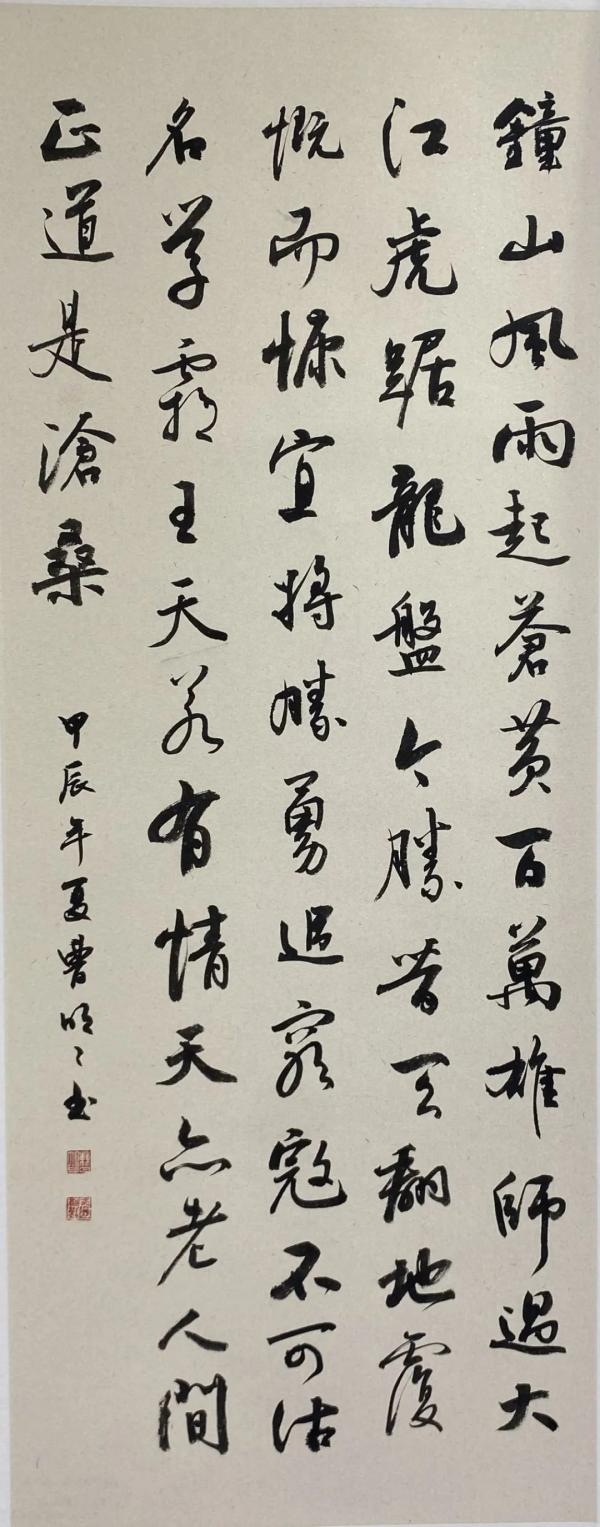 鐘山風雨起蒼黃百萬雄師過大
江虎踞龍盤今勝昔天翻地覆
慨而慷宜將勝勇追窮寇不可沽
名學霸王天若有情天亦老人間
正道是滄桑
甲辰年夏曹明明書